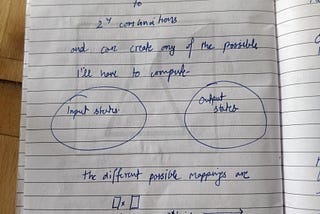 to
2^4 combinations
and can create any of the possible
I'll have to compute-
Input states
Output
states
the different possible mappings are